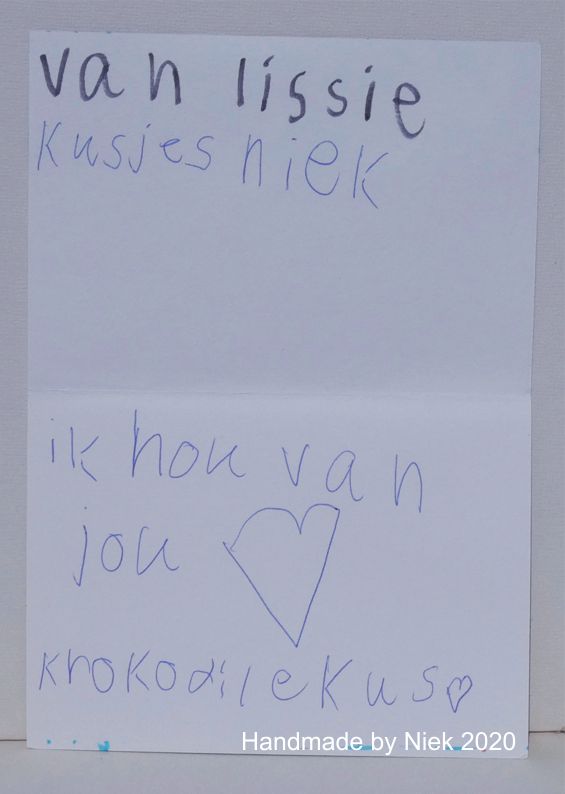 van lissie
Kusjes niek
ik hou van
jou
Krokodilekus
Handmade by Niek 2020